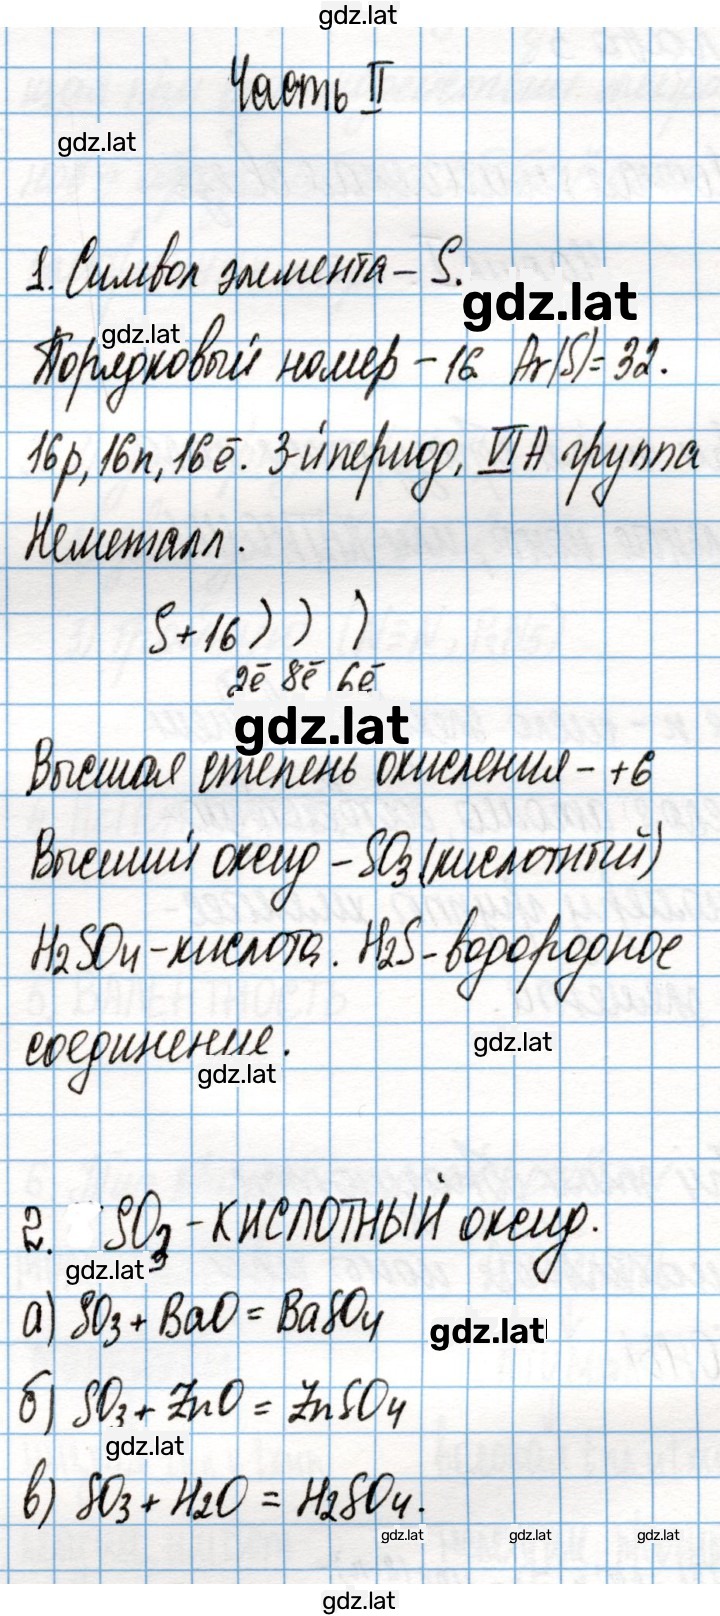 gdz.lat
Часть II
gdz.lat
1. Символ элемента – S.
gdz.lat
gdz.lat
Порядковый номер – 16 Ar(S)=32.
16p, 16n, 16ē. 3-й период, VIA группа
Неметалл.
S+16 ) ) )
2ē 8ē 6ē
gdz.lat
Высшая степень окисления – +6
Высший оксид – SO3 (кислотный)
H2SO4 – кислота. H2S – водородное
соединение.
gdz.lat
gdz.lat
2. SO3 – КИСЛОТНЫЙ оксид.
gdz.lat
а) SO3 + BaO = BaSO4
gdz.lat
б) SO3 + ZnO = ZnSO4
gdz.lat
в) SO3 + H2O = H2SO4.
gdz.lat gdz.lat gdz.lat
gdz.lat